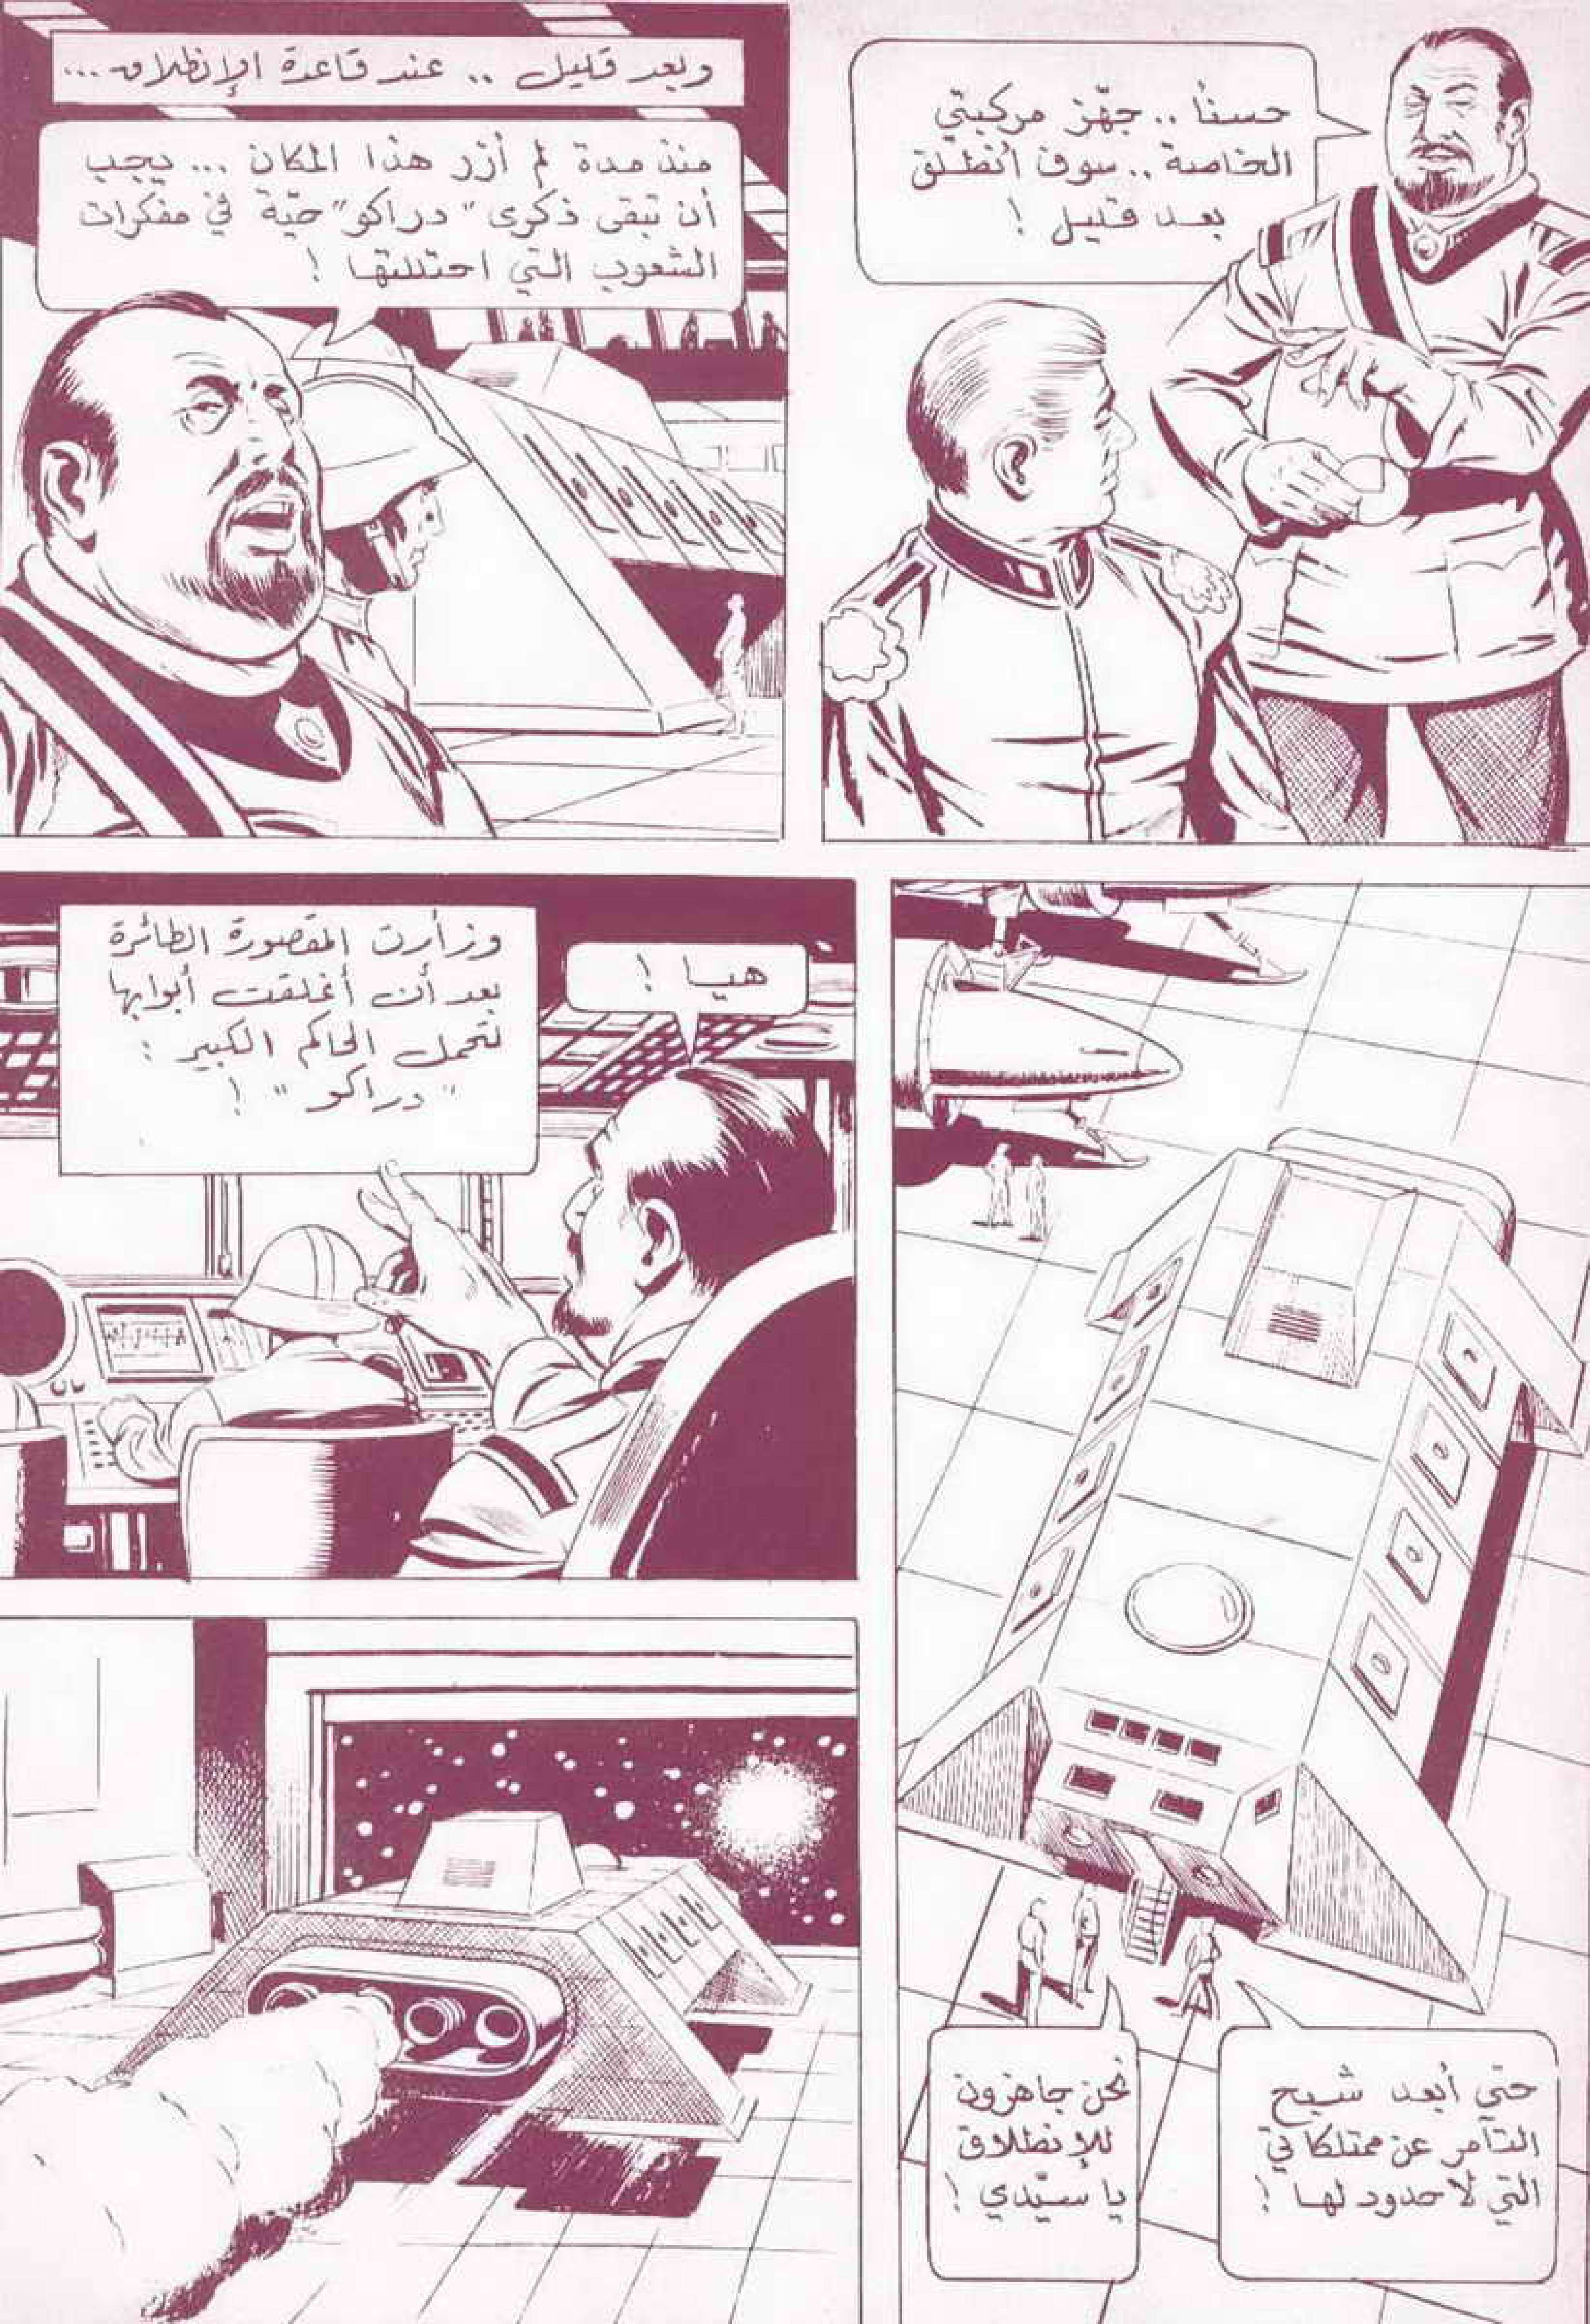 حسناً .. جهّز مركبتي
الخاصة .. سوف أنطلق
بعد قليل !
وبعد قليل .. عند قاعدة الإنطلاق ...
منذ مدة لم أزر هذا المكان ... يجب
أن تبقى ذكرى "دراكو" حيّة في مفكرات
الشعوب التي احتللتها !
حتى أبعد شبح
التآمر عن ممتلكاتي
التي لا حدود لها !
نحن جاهزون
للإنطلاق
يا سيّدي !
هيا !
وزأرت المقصورة الطائرة
بعد أن أغلقت أبوابها
لتحمل الحاكم الكبير :
"دراكو" !